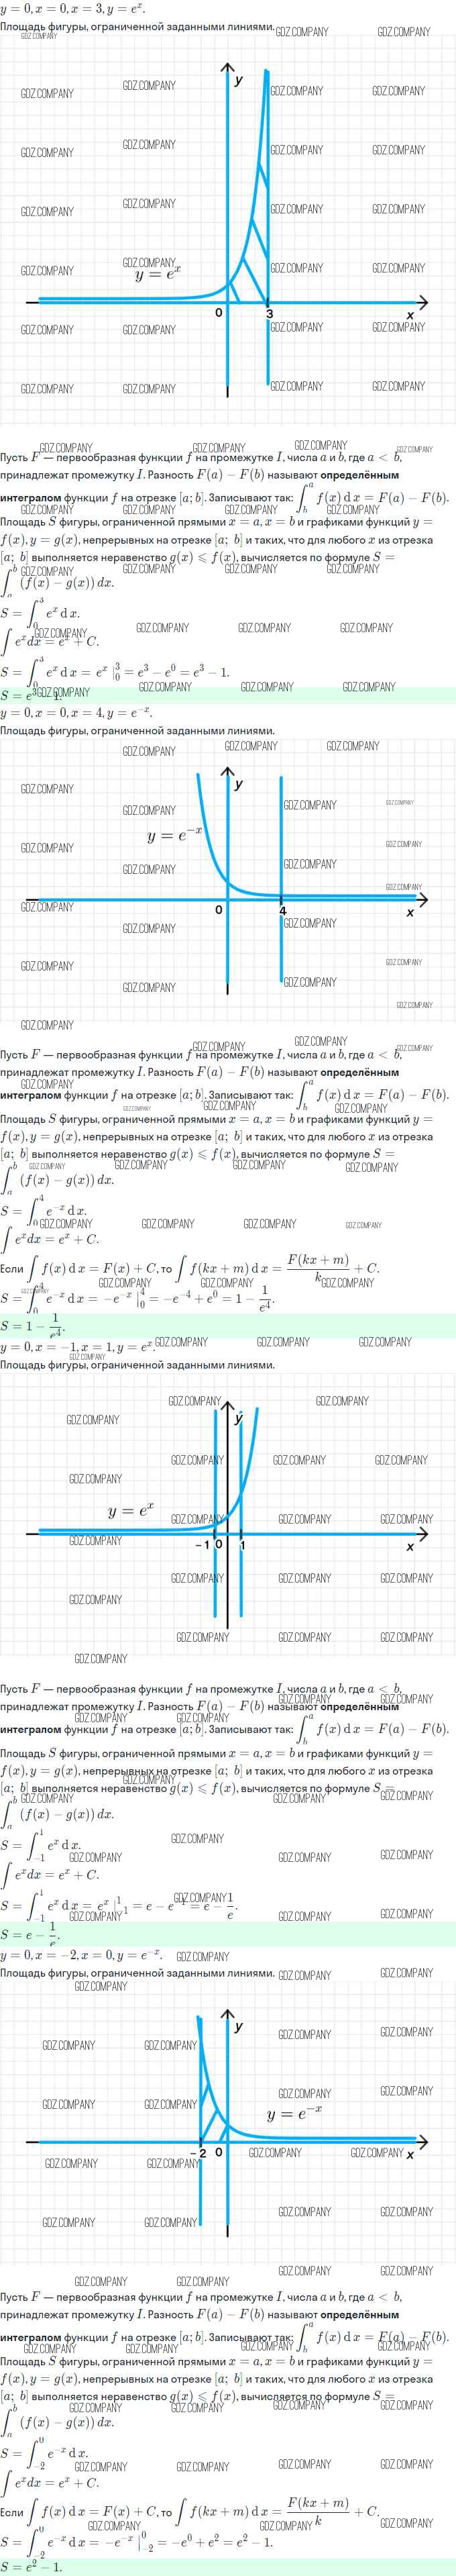 y = 0, x = 0, x = 3, y = e^x.
Площадь фигуры, ограниченной заданными линиями.
y
y = e^x
0
3
x
Пусть F — первообразная функции f на промежутке I, числа a и b, где a < b,
принадлежат промежутку I. Разность F(a) − F(b) называют определённым
интегралом функции f на отрезке [a; b]. Записывают так: ∫_b^a f(x) dx = F(a) − F(b).
Площадь S фигуры, ограниченной прямыми x = a, x = b и графиками функций y =
f(x), y = g(x), непрерывных на отрезке [a; b] и таких, что для любого x из отрезка
[a; b] выполняется неравенство g(x) ⩽ f(x), вычисляется по формуле S =
∫_a^b (f(x) − g(x)) dx.
S = ∫_0^3 e^x dx.
∫ e^x dx = e^x + C.
S = ∫_0^3 e^x dx = e^x |_0^3 = e^3 − e^0 = e^3 − 1.
S = e^3 − 1.
y = 0, x = 0, x = 4, y = e^{−x}.
Площадь фигуры, ограниченной заданными линиями.
y
y = e^{−x}
0
4
x
Пусть F — первообразная функции f на промежутке I, числа a и b, где a < b,
принадлежат промежутку I. Разность F(a) − F(b) называют определённым
интегралом функции f на отрезке [a; b]. Записывают так: ∫_b^a f(x) dx = F(a) − F(b).
Площадь S фигуры, ограниченной прямыми x = a, x = b и графиками функций y =
f(x), y = g(x), непрерывных на отрезке [a; b] и таких, что для любого x из отрезка
[a; b] выполняется неравенство g(x) ⩽ f(x), вычисляется по формуле S =
∫_a^b (f(x) − g(x)) dx.
S = ∫_0^4 e^{−x} dx.
∫ e^x dx = e^x + C.
Если ∫ f(x) dx = F(x) + C, то ∫ f(kx + m) dx = F(kx + m)/k + C.
S = ∫_0^4 e^{−x} dx = −e^{−x} |_0^4 = −e^{−4} + e^0 = 1 − 1/e^4.
S = 1 − 1/e^4.
y = 0, x = −1, x = 1, y = e^x.
Площадь фигуры, ограниченной заданными линиями.
y
y = e^x
−1
0
1
x
Пусть F — первообразная функции f на промежутке I, числа a и b, где a < b,
принадлежат промежутку I. Разность F(a) − F(b) называют определённым
интегралом функции f на отрезке [a; b]. Записывают так: ∫_b^a f(x) dx = F(a) − F(b).
Площадь S фигуры, ограниченной прямыми x = a, x = b и графиками функций y =
f(x), y = g(x), непрерывных на отрезке [a; b] и таких, что для любого x из отрезка
[a; b] выполняется неравенство g(x) ⩽ f(x), вычисляется по формуле S =
∫_a^b (f(x) − g(x)) dx.
S = ∫_{−1}^1 e^x dx.
∫ e^x dx = e^x + C.
S = ∫_{−1}^1 e^x dx = e^x |_{−1}^1 = e − e^{−1} = e − 1/e.
S = e − 1/e.
y = 0, x = −2, x = 0, y = e^{−x}.
Площадь фигуры, ограниченной заданными линиями.
y
y = e^{−x}
−2
0
x
Пусть F — первообразная функции f на промежутке I, числа a и b, где a < b,
принадлежат промежутку I. Разность F(a) − F(b) называют определённым
интегралом функции f на отрезке [a; b]. Записывают так: ∫_b^a f(x) dx = F(a) − F(b).
Площадь S фигуры, ограниченной прямыми x = a, x = b и графиками функций y =
f(x), y = g(x), непрерывных на отрезке [a; b] и таких, что для любого x из отрезка
[a; b] выполняется неравенство g(x) ⩽ f(x), вычисляется по формуле S =
∫_a^b (f(x) − g(x)) dx.
S = ∫_{−2}^0 e^{−x} dx.
∫ e^x dx = e^x + C.
Если ∫ f(x) dx = F(x) + C, то ∫ f(kx + m) dx = F(kx + m)/k + C.
S = ∫_{−2}^0 e^{−x} dx = −e^{−x} |_{−2}^0 = −e^0 + e^2 = e^2 − 1.
S = e^2 − 1.
GDZ.COMPANY